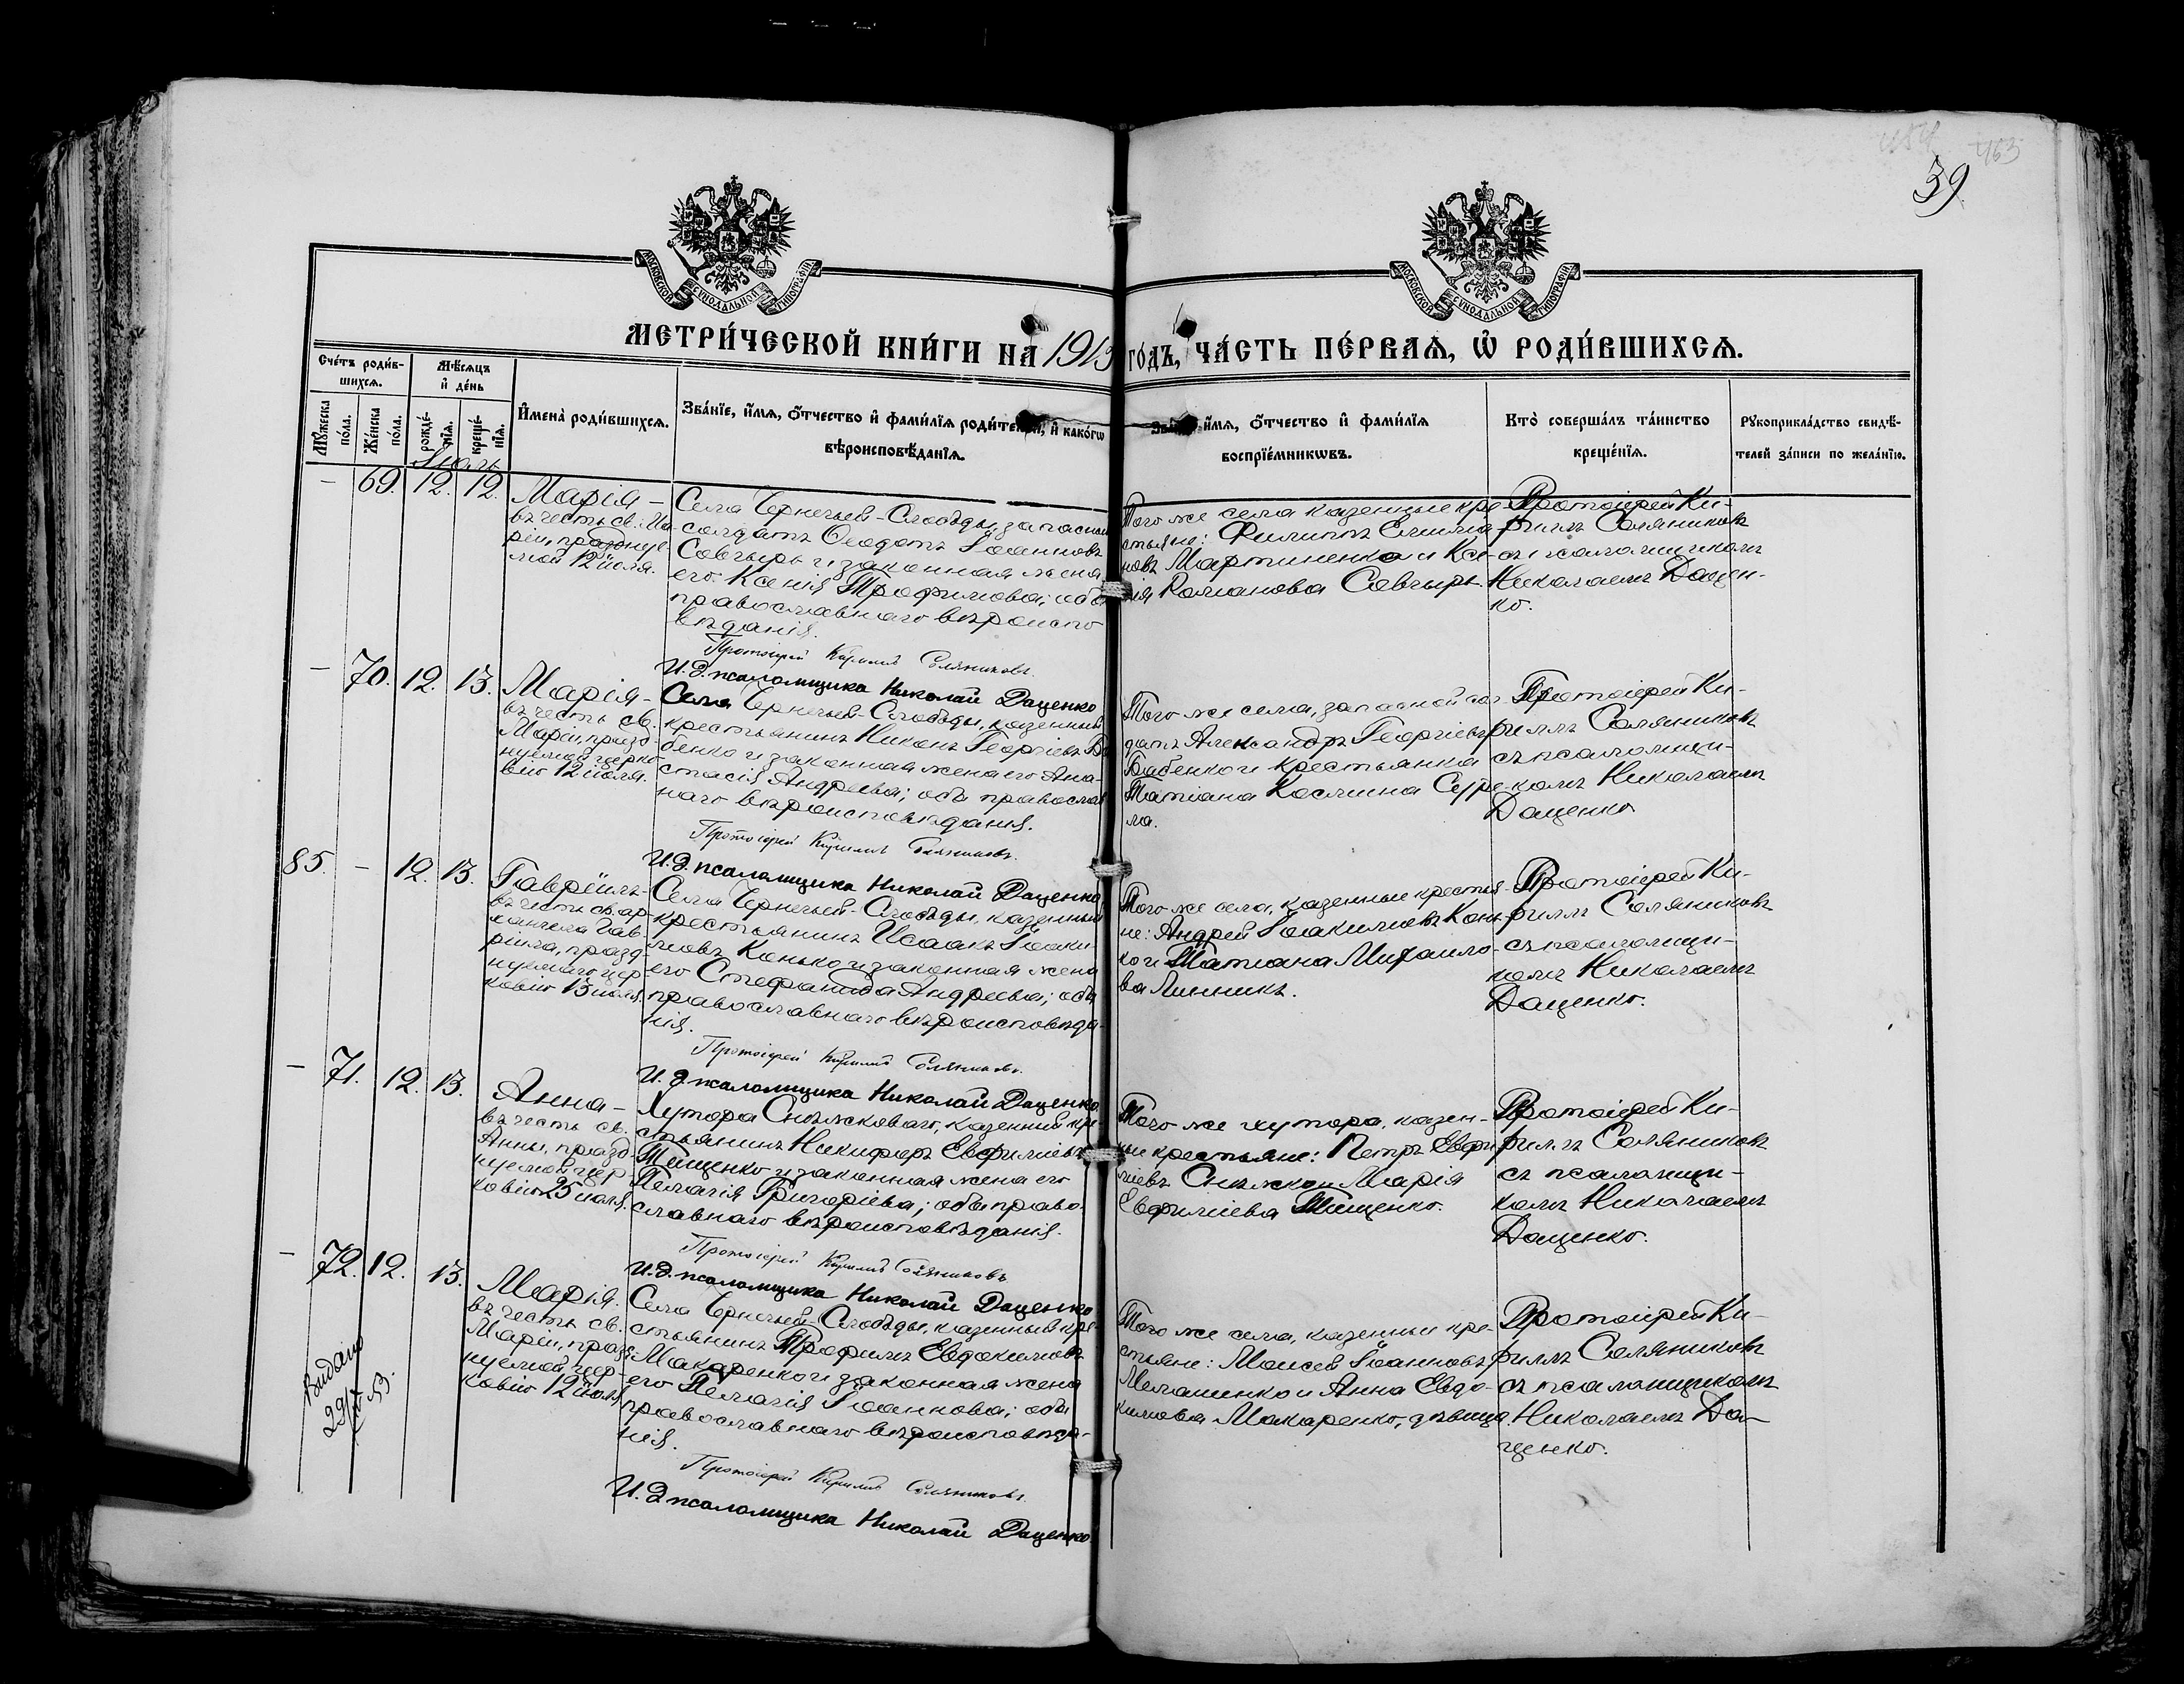 463
39
МОСКОВСКОЙ СѴНОДАЛЬНОЙ ТИПОГРАФІИ
МОСКОВСКОЙ СѴНОДАЛЬНОЙ ТИПОГРАФІИ
МЕТРИ́ЧЕСКОЙ КНИ́ГИ НА 1913 ГО́ДЪ, ЧА́СТЬ ПЕ́РВАѦ, Ѡ РОДИ́ВШИХСѦ.
Сче́тъ роди́в-
шихсѧ.
Мꙋ́жеска по́ла.
Же́нска по́ла.
Мѣ́сѧцъ
и҆ де́нь
рожде́-
нїѧ.
креще́-
нїѧ.
И҆мена̀ роди́вшихсѧ.
Зва́нїе, и҆́мѧ, ѻ҆́тчество и҆ фами́лїѧ роди́телей, и҆ како́гѡ
вѣроисповѣ́данїѧ.
Зва́нїе, и҆́мѧ, ѻ҆́тчество и҆ фами́лїѧ
воспрїе́мникѡвъ.
Кто̀ соверша́лъ та́инство
креще́нїѧ.
Рꙋкоприкла́дство свидѣ́-
телей за́писи по жела́нїю.
Іюль
– 69. 12. 12.
Марія –
въ честь св. Ма-
ріи, празднуе-
мой 12 іюля.
Села Чернечьей-Слободы, запасный
солдатъ Ѳеодотъ Іоанновъ
Совчыръ и законная жена
его Ксенія Трофимова; оба
православнаго вѣроиспо-
вѣданія.
Протоіерей Кириллъ Соляниковъ.
И. д. псаломщика Николай Даценко
Того же села казенные кре-
стьяне: Филиппъ Емилиа-
новъ Мартиненко и Ксе-
нія Романова Совчыръ.
Протоіерей Ки-
риллъ Соляниковъ
съ псаломщикомъ
Николаемъ Дацен-
ко.
– 70. 12. 13.
Марія –
въ честь св.
Маріи, празд-
нуемой церко-
вію 12 іюля.
Села Чернечьей-Слободы, казенный
крестьянинъ Никонъ Георгіевъ Ба-
бенко и законная жена его Ана-
стасія Андреева; оба православ-
наго вѣроисповѣданія.
Протоіерей Кириллъ Соляниковъ.
И. д. псаломщика Николай Даценко
Того же села, запасной сол-
датъ Александръ Георгіевъ
Бабенко и крестьянка
Татіана Космина Суре-
ма.
Протоіерей Ки-
риллъ Соляниковъ
съ псаломщи-
комъ Николаемъ
Даценко
85. – 12. 13.
Гавріилъ –
въ честь св. ар-
хангела Гав-
ріила, празд-
нуемаго цер-
ковію 13 іюля.
Села Чернечьей-Слободы, казенный
крестьянинъ Исаакъ Іоаки-
мовъ Конько и законная жена
его Стефанида Андреева; оба
православнаго вѣроисповѣда-
нія.
Протоіерей Кириллъ Соляниковъ.
И. д. псаломщика Николай Даценко
Того же села, казенные крестья-
не: Андрей Іоакимовъ Конь-
ко и Татіана Михаило-
ва Линникъ.
Протоіерей Ки-
риллъ Соляниковъ
съ псаломщи-
комъ Николаемъ
Даценко.
– 71. 12. 13.
Анна –
въ честь св.
Анны, празд-
нуемой цер-
ковію 25 іюля.
Хутора Снѣжковаго, казенный кре-
стьянинъ Никифоръ Евфиміевъ
Тищенко и законная жена его
Пелагія Григоріева; оба право-
славнаго вѣроисповѣданія.
Протоіерей Кириллъ Соляниковъ
И. д. псаломщика Николай Даценко
Того же хутора, казен-
ные крестьяне: Петръ Евфи-
міевъ Снѣжко и Марія
Евфиміева Тищенко.
Протоіерей Ки-
риллъ Соляниковъ
съ псаломщи-
комъ Николаемъ
Даценко.
– 72. 12. 13.
Марія.
въ честь св.
Маріи, празд-
нуемой цер-
ковію 12 іюля.
Села Чернечьей-Слободы, казенный кре-
стьянинъ Трофимъ Евдокимовъ
Макаренко и законная жена
его Пелагія Іоаннова; оба
православнаго вѣроисповѣда-
нія.
Протоіерей Кириллъ Соляниковъ.
И. д. псаломщика Николай Даценко
Того же села, казенные кре-
стьяне: Моисей Іоанновъ
Мелашенко и Анна Евдо-
кимова Макаренко, дѣвица.
Протоіерей Ки-
риллъ Соляниковъ
съ псаломщикомъ
Николаемъ Да-
ценко.
Видано
53.